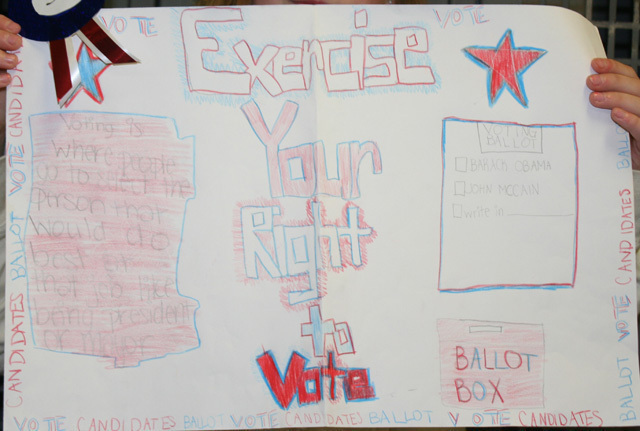 VOTE
VOTE
Exercise
Your
Right
to
Vote
Voting is
where people
go to select the
person that
would do
best at
that job like
being president
or major
VOTING
BALLOT
BARACK OBAMA
JOHN MCCAIN
write in
BALLOT
BOX
CANDIDATES BALLOT VOTE CANDIDA
VOTE CANDIDATES BALLOT VOTE CANDIDATES BALLOT VOTE CANDIDATES
BALLOT VOTE CANDIDATES BALL